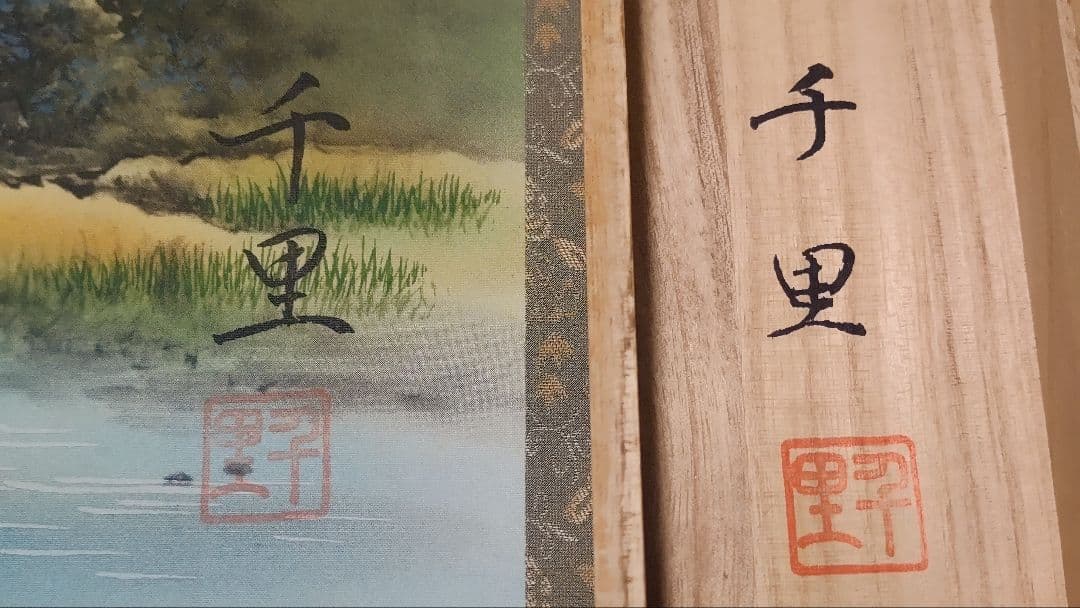 千里
野
千里
野